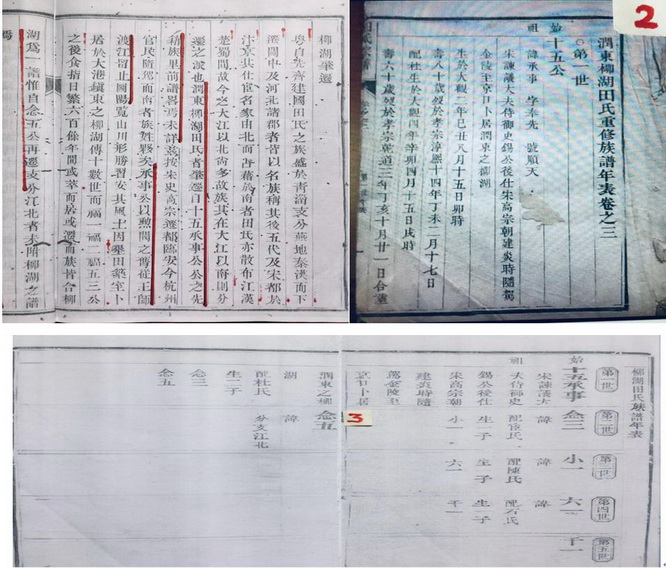 柳湖肇遷
粵自先齊建國田氏之族盛於青淄支分燕地秦漢而下
遷關中及河北諸郡者皆以名族稱其後五代及宋都於
汴京其仕宦名家由北而占籍於南者田氏亦散布江漢
楚蜀間故今之大江以北尚多故族其在大江以南則分
遷之派也潤東柳湖田氏者肇遷自十五承事公公之先
族里前譜畧焉未詳按宋史高宗遷都臨安今杭州
官民隨駕而南者族姓夥矣承事公以勲閥之裔從王師
渡江留止覧山川形勝習安其風土因墾田築室卜
居於大港鎮東之柳湖傳十數世而福一福二福五三公
之後食指日繁六百餘年間或萃而居或遷而族皆合柳
湖爲一譜惟自念五公再遷支分江北者未附柳湖之譜
焉
2
潤東柳湖田氏重修族譜年表卷之三
第一世
十五公
始祖
諱承事 字奉先 號順天
宋諫議大夫侍御史錫公後仕宋高宗朝建炎時隨駕
金陵至京口卜居潤東之柳湖
生於大觀三年己丑八月十五日卯時
壽八十歲歿於孝宗淳熙十四年丁未二月十七日
配杜生於大觀四年辛卯四月十五日戌時
壽六十歲歿於孝宗乾道三年丁亥十月廿一日合塟
柳湖田氏族譜年表
第一世
始祖
十五承事
宋諫議大
夫侍御史
錫公後仕
宋高宗朝
建炎時隨
駕金陵至
京口卜居
潤東之柳
湖
配杜氏
生二子
念三
念五
第二世
念三
諱
配氏
生一子
小一
3
念五
諱
分支江北
第三世
小一
諱
配陳氏
生一子
六一
第四世
六一
諱
配石氏
生一子
千一
第五世
千一